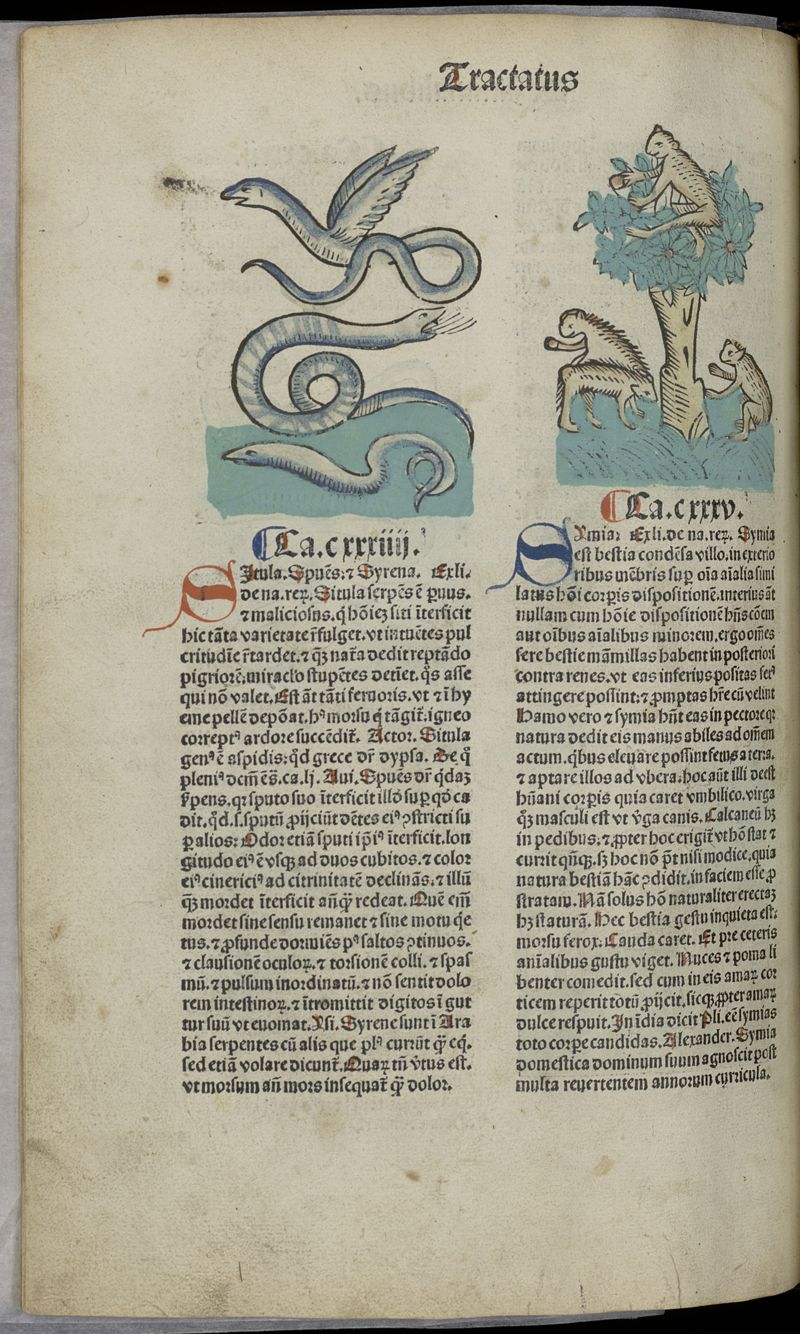 Tractatus
Ca.cxxxiiij.
SItula.Spuẽs.⁊ Syrena. Ex li.
de na.reꝝ. Situla serpẽs ẽ ꝑuus.
⁊ maliciosus.q̇ hoĩeꝫ siti ĩterficit
hic tãta varietate r̃fulget.vt intuẽtes pul
critudĩe r̃tardet.⁊ qꝫ nat̃a dedit reptãdo
pigriorẽ.miraclo stupẽtes detiet. q̃s asse
qui nõ valet. Est ãt tãti feruoris. vt ⁊ ĩ hy
eme pellẽ depõat.hꝰ morsu q̇ tãgit̃.igneo
correptꝰ ardore succẽdit̃. Actor. Situla
genꝰ ẽ aspidis:qd̃ grece dr̃ dypsa. De q̃
pleniꝰ dcm̃ ẽ s̃.ca.lj. Aui. Spuẽs dr̃ qdaꝫ
ẜpens.qꝛ sputo suo ĩterficit illd̃ suꝑ qd̃ ca
dit.qd̃.s.sputũ ꝓijciũt dẽtes eiꝰ ꝯstricti su
ꝑ alios: Odor etiã sputi ip̃iꝰ ĩterficit.lon
gitudo eiꝰ ẽ vsqꝫ ad duos cubitos.⁊ color
eiꝰ cinericiꝰ ad citrinitatẽ declinãs.⁊ illũ
quꝫ mordet ĩterficit añq̃ꝫ redeat. Quẽ em̃
mordet sine sensu remanet ⁊ sine motu q̇e
tus.⁊ ꝓfunde dormiẽs pꝰ saltos ꝯtinuos.
⁊ clausionẽ oculoꝝ.⁊ torsionẽ colli.⁊ spas
mũ.⁊ pulsum inordinatũ.⁊ nõ sentit dolo
rem intestinoꝝ.⁊ ĩtromittit digitos ĩ gut
tur suũ vt euomat. Ysi. Syrene sunt ĩ Ara
bia serpentes cũ alis que plꝰ currũt q̃ꝫ eq̇.
sed etiã volare dicunt̃. Quaꝝ tm̃ ṽtus est.
vt morsum añ mors insequat̃ q̃ꝫ dolor.
Ca.cxxxv.
SYmia: Ex li.de na.reꝝ. Symia
est bestia condẽsa villo.in exterio
ribus mẽbris suꝑ oĩa aĩalia simi
latus hõi corꝑis dispositionẽ.interius ãt
nullam cum hõie dispositionẽ hñs cõem
aut oĩbus aĩalibus minorem.ergo om̃es
fere bestie mãmillas habent in posteriori
contra renes.vt eas inferius positas fetꝰ
attingere possint:⁊ ꝓmptas hr̃e cũ velint
Hamo vero ⁊ symia hñt eas in pectore qꝛ
natura dedit eis manus abiles ad om̃em
actum.qbus eleuare possint fetus a terra.
⁊ aptare illos ad vbera.hoc aũt illi deest
hũani corꝑis quia caret vmbilico.virga
qꝫ masculi est vt ṽga canis. Calcaneũ hꝫ
in pedibus.⁊ ꝓpter hoc erigit̃ vt hõ stat ⁊
currit qñqꝫ.sꝫ hoc nõ p̃t nisi modice.quia
natura bestiã hãc ꝯdidit.in faciem esse ꝓ
stratam. Nã solus hõ naturaliter erectaꝫ
hꝫ staturã. Hec bestia gestu inquieta est:
morsu ferox: Cauda caret. Et pre ceteris
aĩalibus gustu viget. Nuces ⁊ poma li
benter comedit.sed cum in eis amaꝝ cor
ticem reperit totũ ꝓijcit.sicqꝫ ꝓpter amaꝝ
dulce respuit. In ĩdia dicit Pli.eẽ symias
toto corꝑe candidas. Alexander. Symia
domestica dominum suum agnoscit post
multa reuertentem annorum curricula.